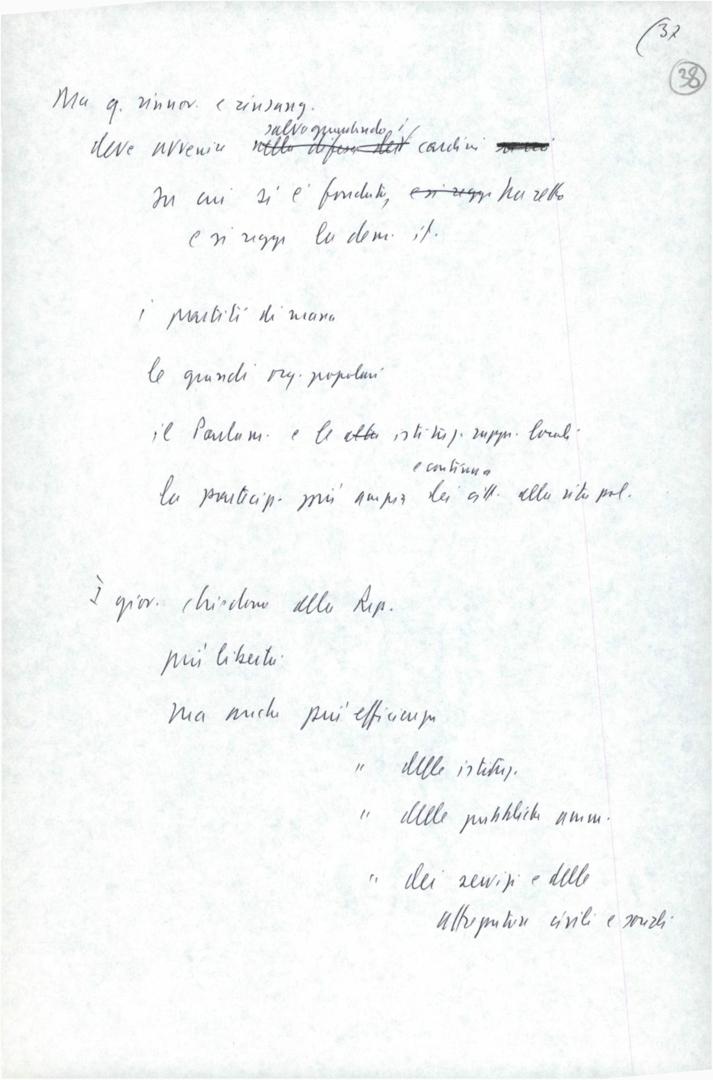 (37
38
Ma q. rinnov. e rinsang.
salvaguardando i
deve avvenire nella difesa dei cardini
su cui si è fondata, e si regge ha retto
e si regge la dem. it.
i partiti di massa
le grandi org. popolari
il Parlam. e le altre istituz. rappr. locali
e continua
la particip. più ampia dei citt. alla vita pol.
I giov. chiedono alla Rep.
più libertà
ma anche più efficienza
" delle istituz.
" delle pubbliche amm.
" dei servizi e delle
attrezzature civili e sociali